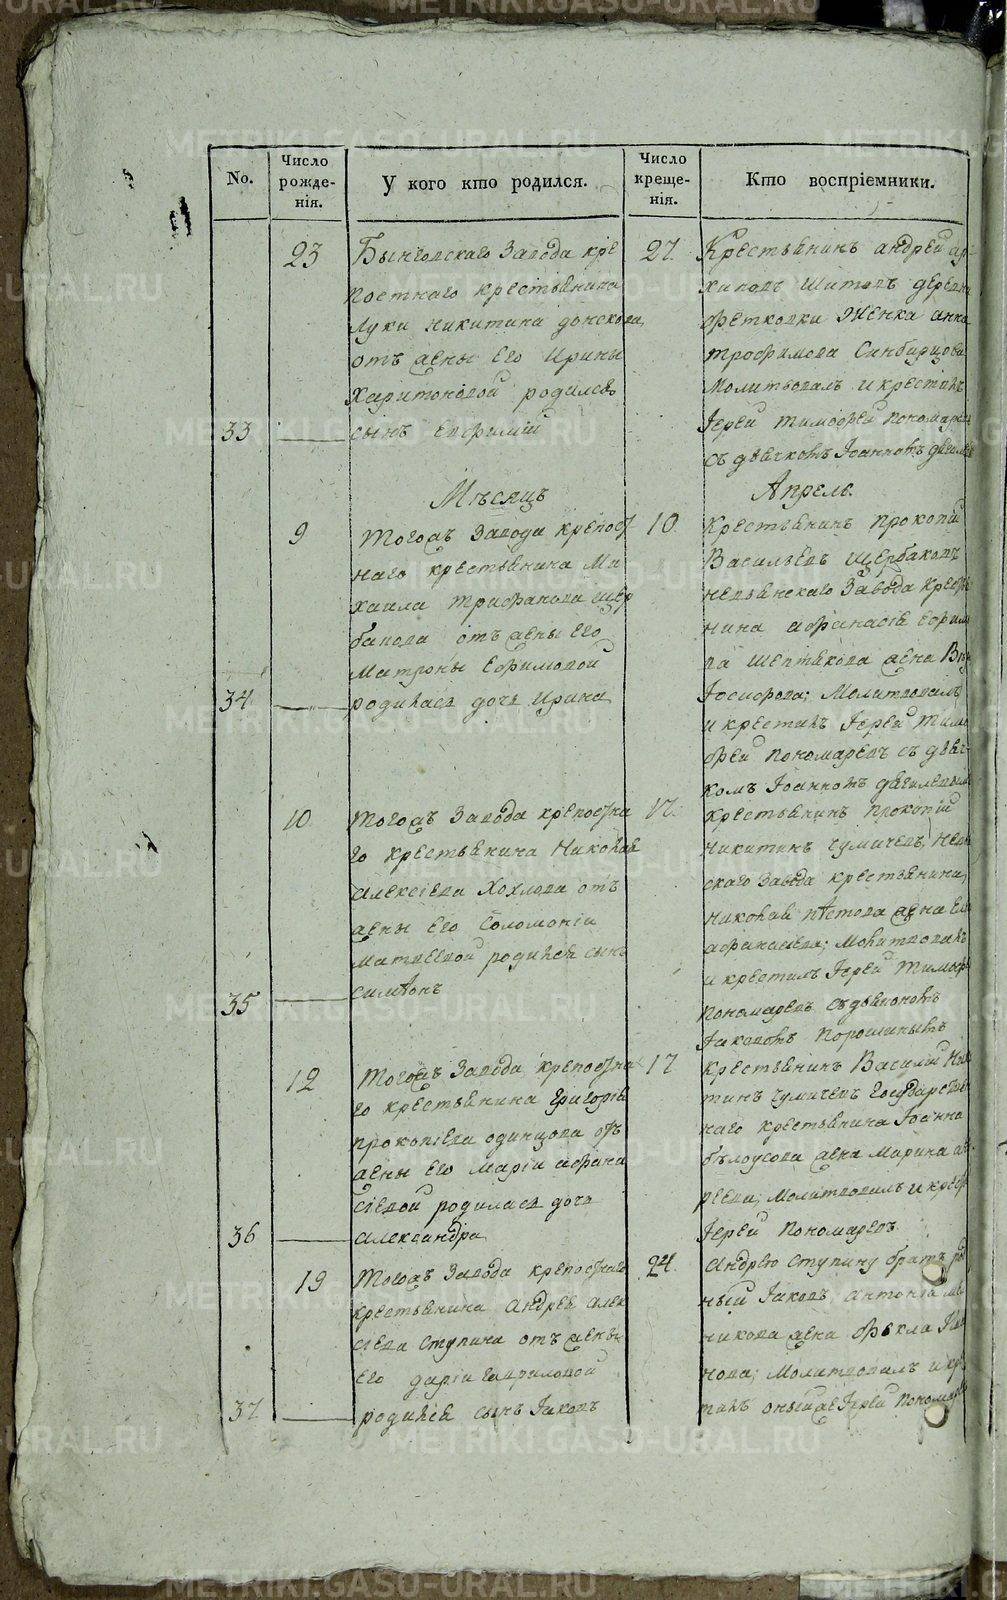 No.
Число рожде-нія.
У кого кто родился.
Число креще-нія.
Кто воспріемники.
33
23
Бынговскаго Завода кре
постнаго крестьянина
Луки Никитина донскова
отъ жены его Ирины
Харитоновой родился
сынъ Евфимій
27.
Крестьянинъ андрей ар-
хиповъ Шитовъ деревни
фетковки Женка анна
трофимова Синбирцова
Молитвовалъ и крестилъ
Іерей тимофей пономаревъ
съ дьячкомъ Іоанномъ
Мѣсяцъ
Апрель.
34
9
Тогожъ Завода крепост
наго крестьянина Ми
хаила трифанова щер
бакова отъ жены его
Матроны Ефимовой
родилась дочь Ирина
10
Крестьянинъ прокопій
Васильевъ щербаковъ
невьянскаго Завода крестья
нина афанасія ефимо
ва Шептякова жена
Іосифова; Молитвовалъ
и крестилъ Іерей тимо
фей пономаревъ съ дьяч-
комъ Іоанномъ
35
10
Тогожъ Завода крепостна
го крестьянина Николая
алексіева Хохлова отъ
жены его Соломоніи
Матвеевой родился сынъ
симеонъ
17.
крестьянинъ прокопій
никитинъ чумичевъ, невьян
скаго Завода крестьянина
николая пестова жена
афанасьева; Молитвовалъ
и крестилъ Іерей тимофей
пономаревъ съ дьякономъ
Іаковомъ порошинымъ
36
12
Тогожъ Завода, крепостна
го крестьянина григорія
прокопіева одинцова отъ
жены его маріи афана
сіевой родилась дочь
александра
17
крестьянинъ Василій Ники
тинъ чумичевъ Государствен
наго крестьянина Іоанна
бѣлоусова жена марина ан
реева; Молитвовалъ и крест
Іерей пономаревъ
37
19
Тогожъ Завода крепостнаго
крестьянина андрея алек
сіева ступина отъ жены
его даріи гавриловой
родился сынъ Іаковъ
24.
андрею ступину братъ род
ный Іаковъ, антонія мель
никова жена фекла
нова; Молитвовалъ и крес
тилъ оныйже Іерей пономаревъ
METRIKI.GASO-URAL.RU